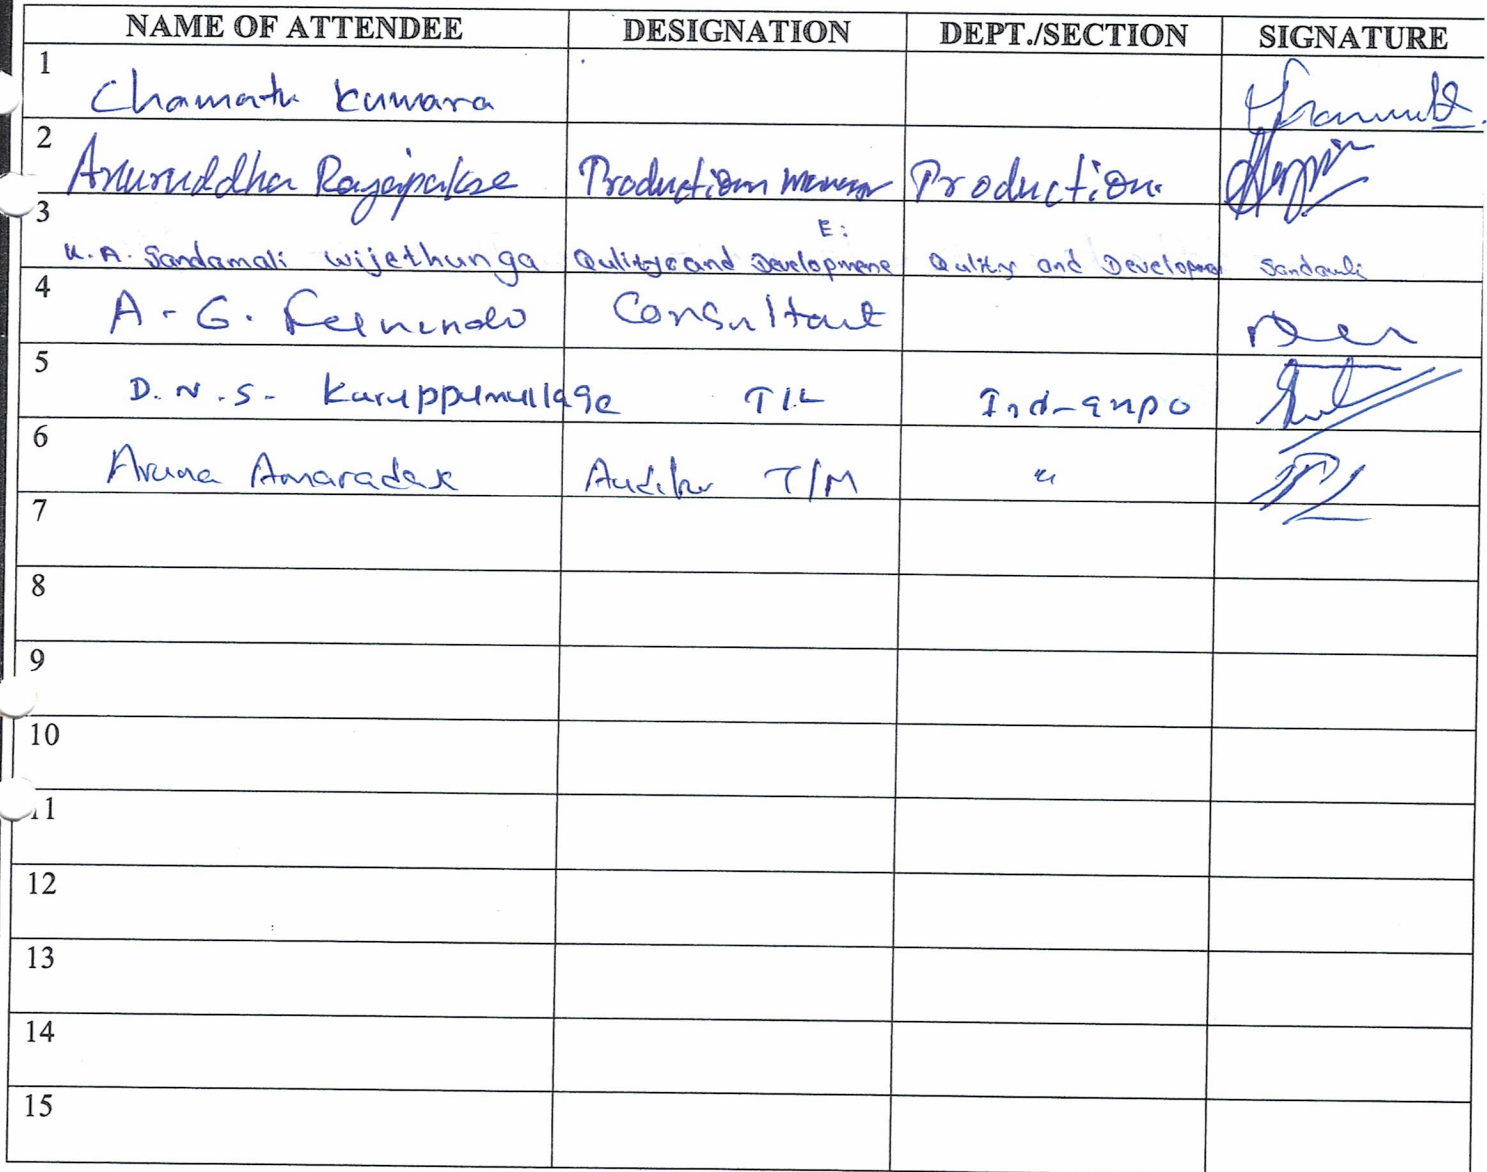 NAME OF ATTENDEE DESIGNATION DEPT./SECTION SIGNATURE
1
Chamath Kumara
2
Anuruddha Rajapakse Production Production.
3
E:
K.A. Sandamali Wijethunga Qulity and Development Qulity and Developme Sandamali
4
A-G. Fernando Consultant
5
D.N.S- Karuppumullage T/L
6
Aruna Auditor T/M "
7
8
9
10
11
12
13
14
15